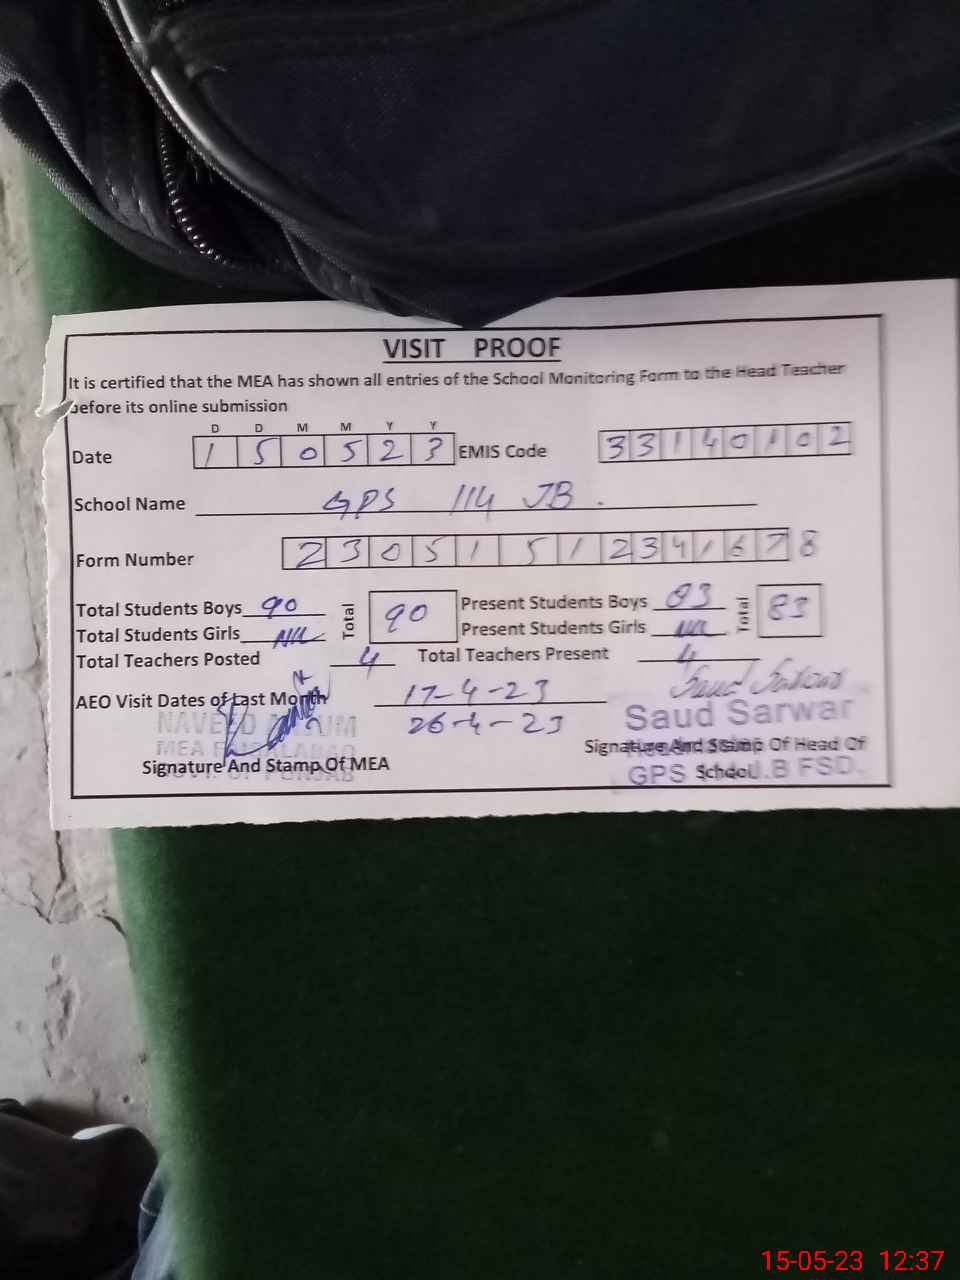 VISIT PROOF
It is certified that the MEA has shown all entries of the School Monitoring Form to the Head Teacher
before its online submission
D D M M Y Y
Date 1 5 0 5 2 3 EMIS Code 3 3 1 4 0 1 0 2
School Name GPS 114 JB.
Form Number 2 3 0 5 1 5 1 2 3 4 1 6 7 8
Total Students Boys 90 Total 90 Present Students Boys 83 Total 83
Total Students Girls Nil Present Students Girls Nil
Total Teachers Posted 4 Total Teachers Present 4
AEO Visit Dates of Last Month 17-4-23
26-4-23
Saud Sarwar
NAVEED ANJUM
MEA FAISALABAD
GOVT. OF PUNJAB
Signature And Stamp Of MEA
Saud Sarwar
Signature And Stamp Of Head Of
School
GPS J.B FSD.
15-05-23 12:37